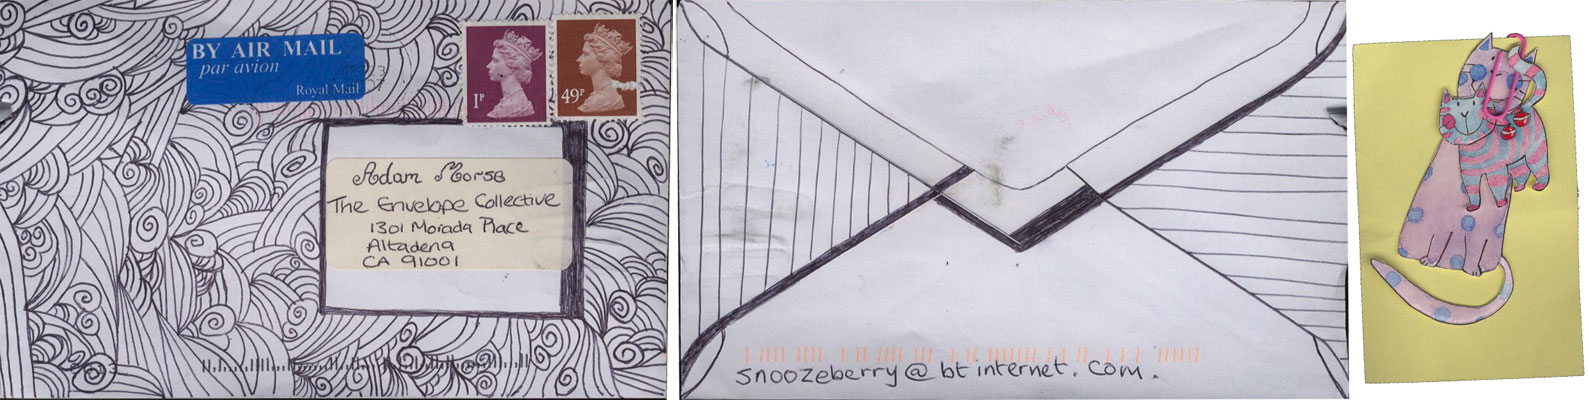 BY AIR MAIL
par avion
Royal Mail
1P
49P
Adam Morse
The Envelope Collective
1301 Morada Place
Altadena
CA 91001
snoozeberry@btinternet.com.